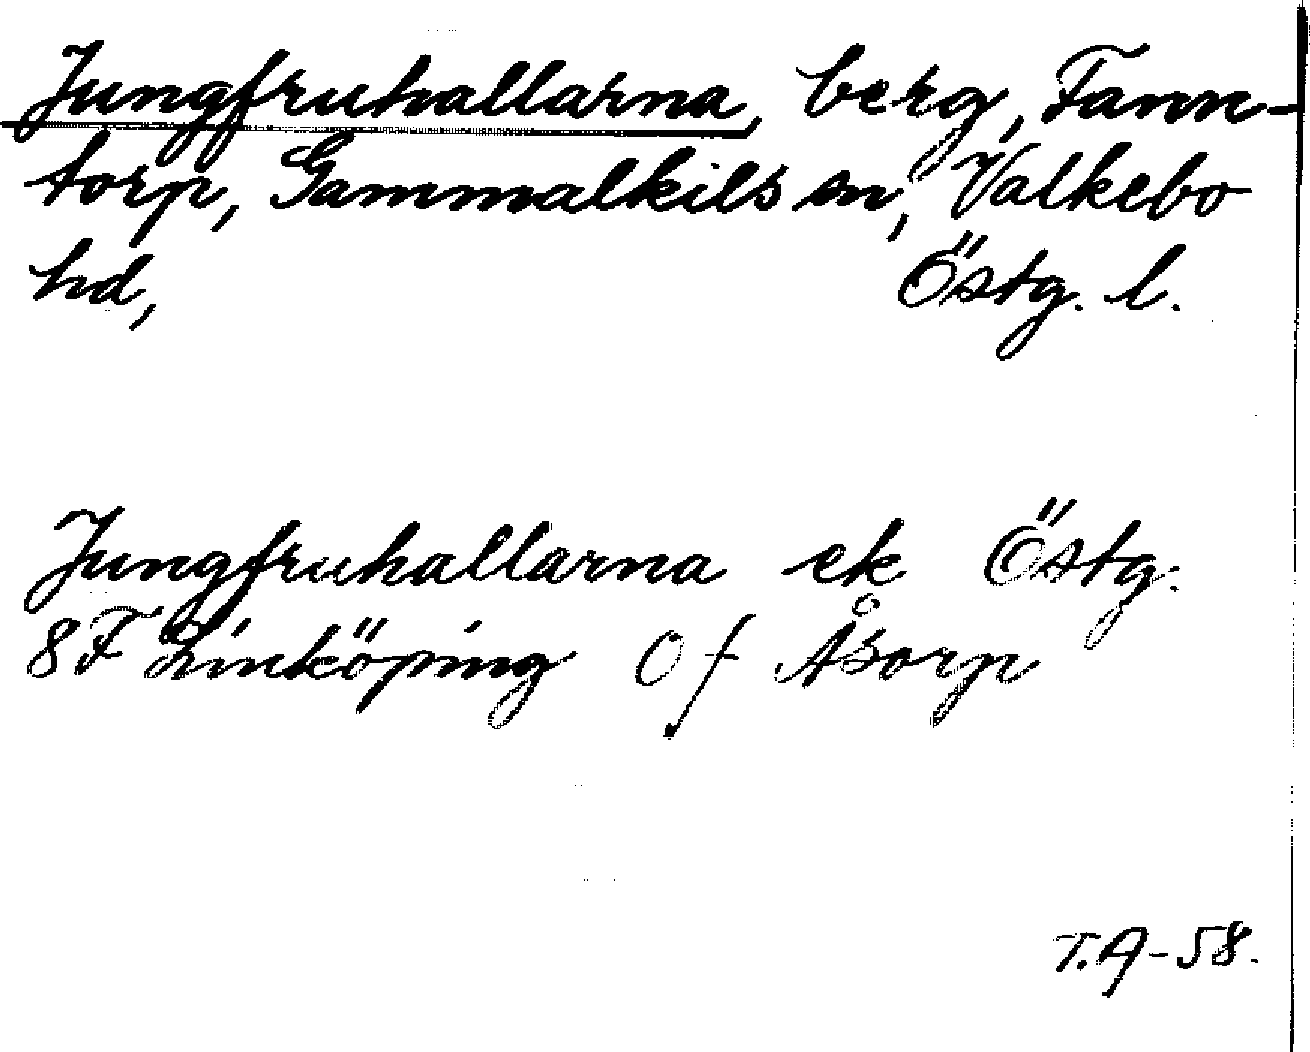 Jungfruhallarna, berg, Fann-
torp, Gammalkils sn, Valkebo
hd, Östg. l.
Jungfruhallarna ek Östg.
8F Linköping Of Åsorp
T.A-58.